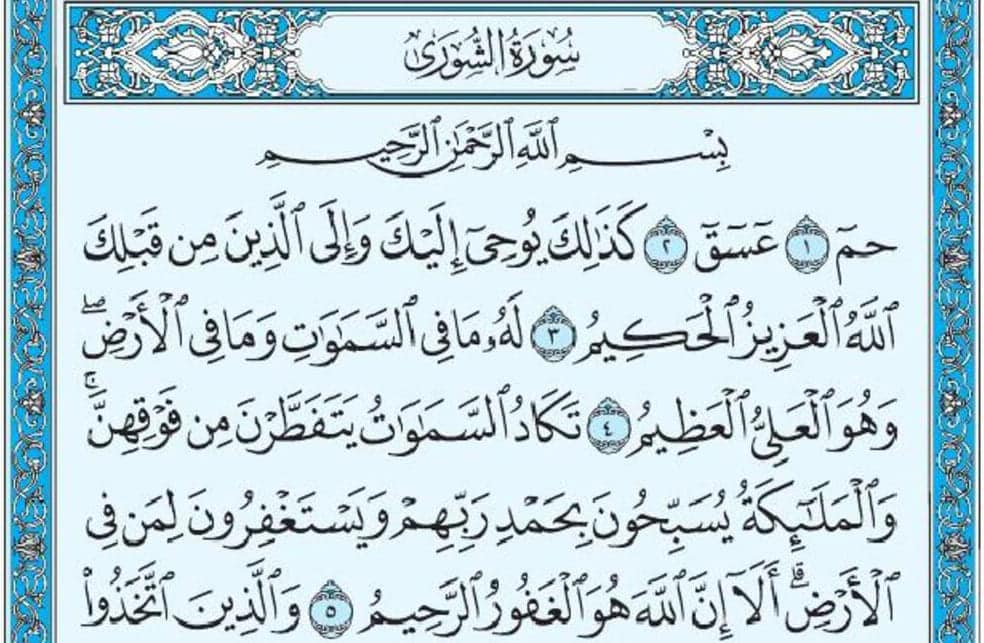 سُورَةُ الشُّورَىٰ
بِسْمِ ٱللَّهِ ٱلرَّحْمَٰنِ ٱلرَّحِيمِ
حمٓ ١ عٓسٓقٓ ٢ كَذَٰلِكَ يُوحِىٓ إِلَيْكَ وَإِلَى ٱلَّذِينَ مِن قَبْلِكَ
ٱللَّهُ ٱلْعَزِيزُ ٱلْحَكِيمُ ٣ لَهُۥ مَا فِى ٱلسَّمَٰوَٰتِ وَمَا فِى ٱلْأَرْضِۖ
وَهُوَ ٱلْعَلِىُّ ٱلْعَظِيمُ ٤ تَكَادُ ٱلسَّمَٰوَٰتُ يَتَفَطَّرْنَ مِن فَوْقِهِنَّۚ
وَٱلْمَلَٰٓئِكَةُ يُسَبِّحُونَ بِحَمْدِ رَبِّهِمْ وَيَسْتَغْفِرُونَ لِمَن فِى
ٱلْأَرْضِۗ أَلَآ إِنَّ ٱللَّهَ هُوَ ٱلْغَفُورُ ٱلرَّحِيمُ ٥ وَٱلَّذِينَ ٱتَّخَذُوا۟